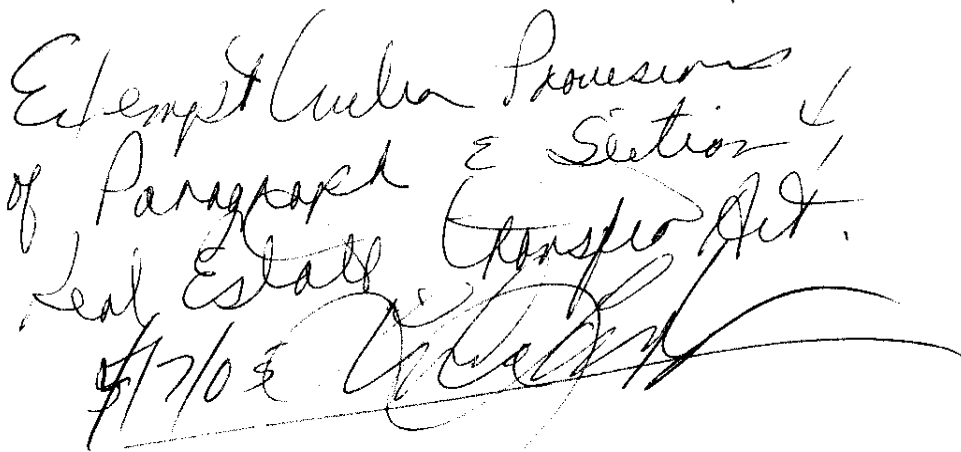 Exempt Under Provisions
of Paragraph E Section 4,
Real Estate Transfer Act.